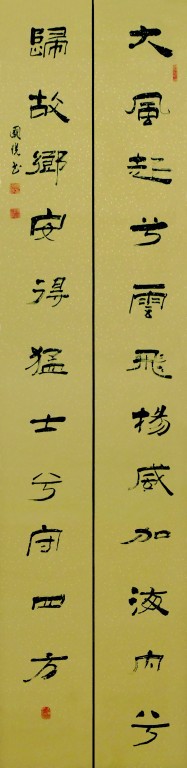 大風起兮雲飛楊威加海内兮
歸故鄉安得猛士兮守四方